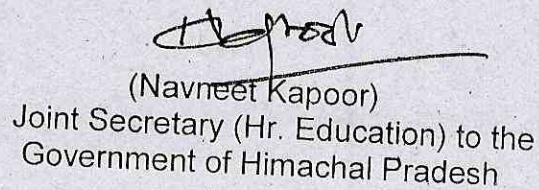 (Navneet Kapoor)
Joint Secretary (Hr. Education) to the
Government of Himachal Pradesh